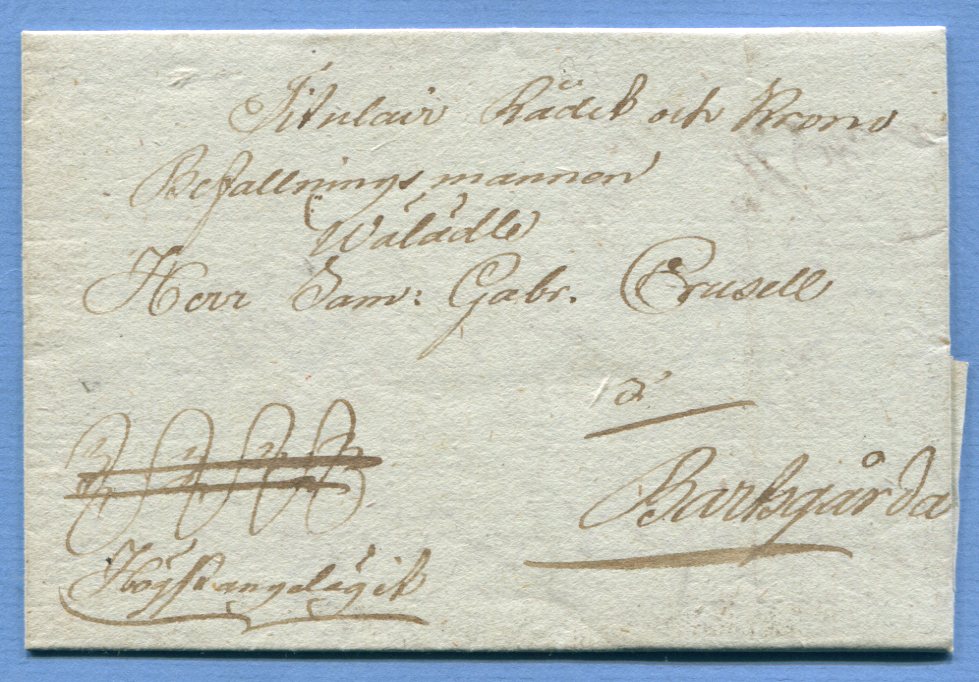 Titulair Rådet och Krono
Befallningsmannen
Wälädle
Herr Sam: Gabr. Crusell
à
Barksgårda
Högstangelägit